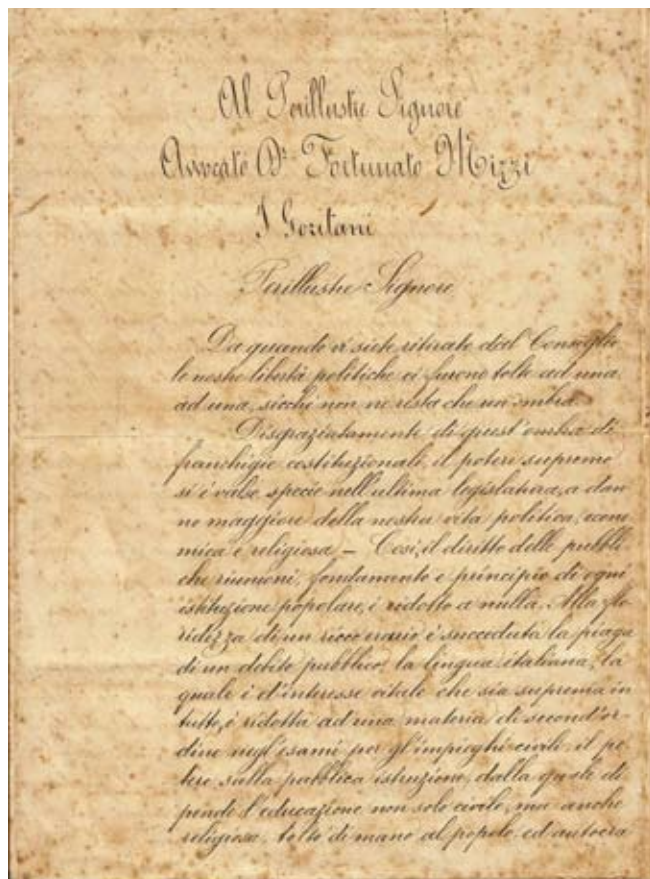 Al Perillustre Signore
Avvocato Dr. Fortunato Mizzi
I Gozitani
Perillustre Signore
Da quando vi siete ritirato dal Consiglio
le nostre libertà politiche ci furono tolte ad una
ad una, sicchè non ne resta che un'ombra.
Disgraziatamente di quest'ombra di
franchigie costituzionali, il potere supremo
si è valso specie nell'ultima legislatura, a dan
no maggiore della nostra vita politica, econo
mica e religiosa – Così, il diritto delle pubbli
che riunioni, fondamento e principio di ogni
istituzione popolare, è ridotto a nulla. Alla flo
ridezza di un ricco erario è succeduta la piaga
di un debito pubblico; la lingua italiana, la
quale è d'interesse vitale che sia suprema in
tutto, è ridotta ad una materia di second'or
dine negl'esami per gl'impieghi civili; il po
tere sulla pubblica istruzione, dalla quale di
pende l'educazione non solo civile, ma anche
religiosa, tolto di mano al popolo ed